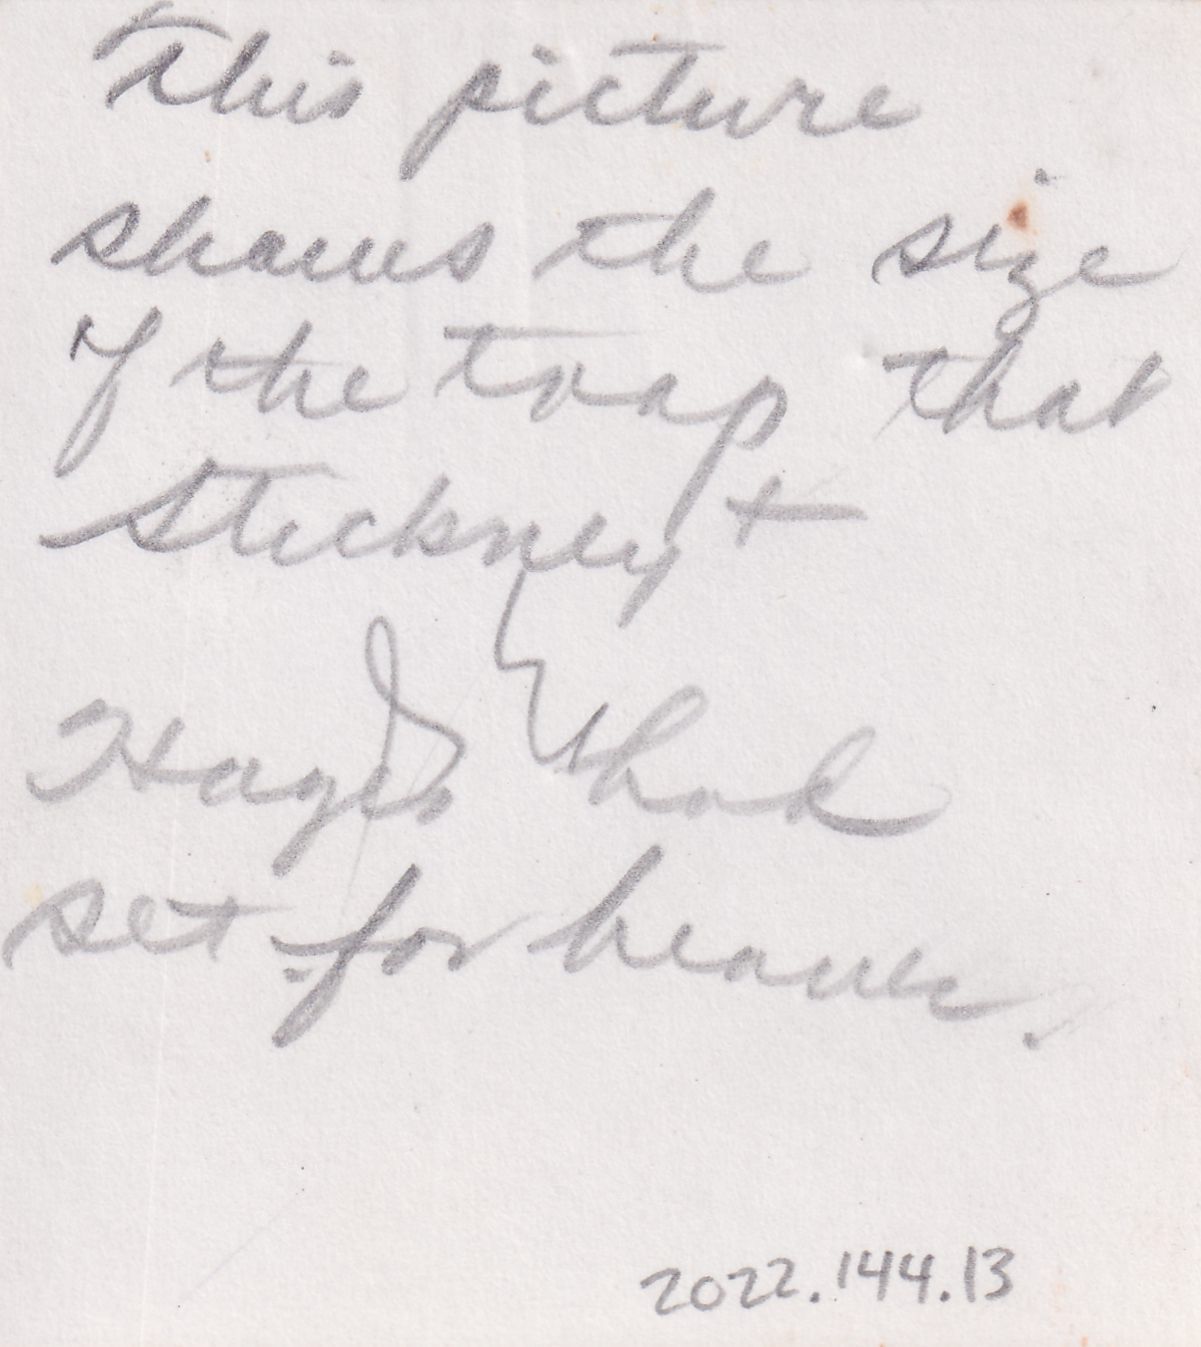 This picture
shows the size
of the trap that
Stickney +
Hayes had
set for beaver.
2022.144.13